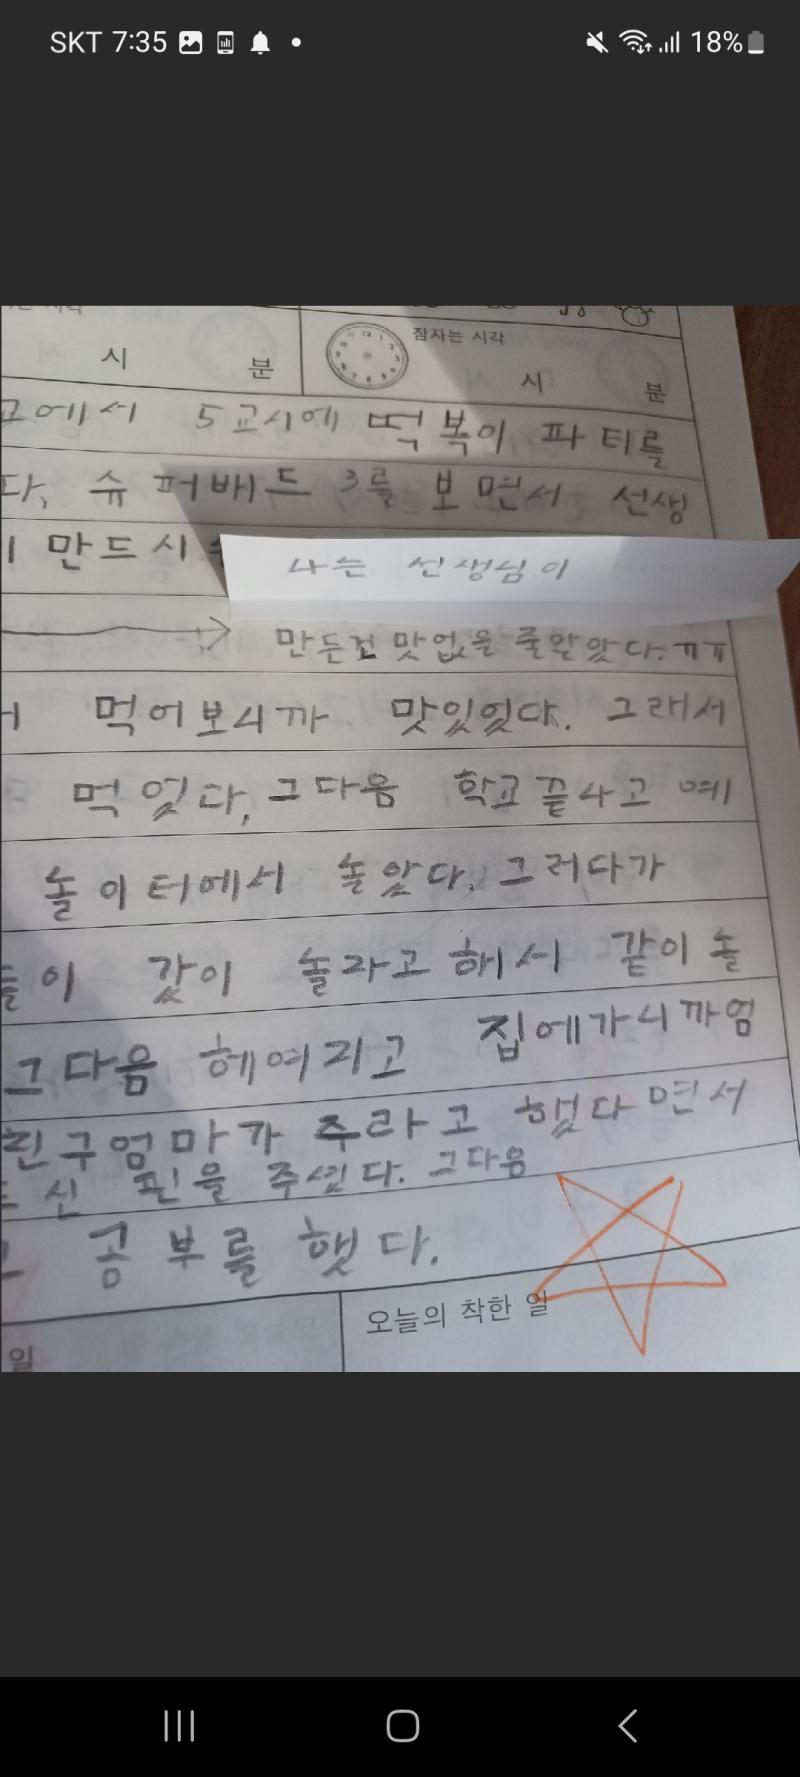 SKT 7:35 18%
시 분
잠자는 시각
시 분
교에서 5교시에 떡볶이 파티를
다, 슈퍼배드 3를 보면서 선생
이 만드시
나는 선생님이
만든건 맛없을 줄알았다.ㅠㅠ
먹어보니까 맛있었다. 그래서
먹었다, 그다음 학교끝나고 예
놀이터에서 놀았다. 그러다가
들이 같이 놀라고 해서 같이 놀
그다음 헤여지고 집에가니까엄
친구엄마가 주라고 했다면서
신 핀을 주셨다. 그다음
공부를 했다.
오늘의 착한 일
일